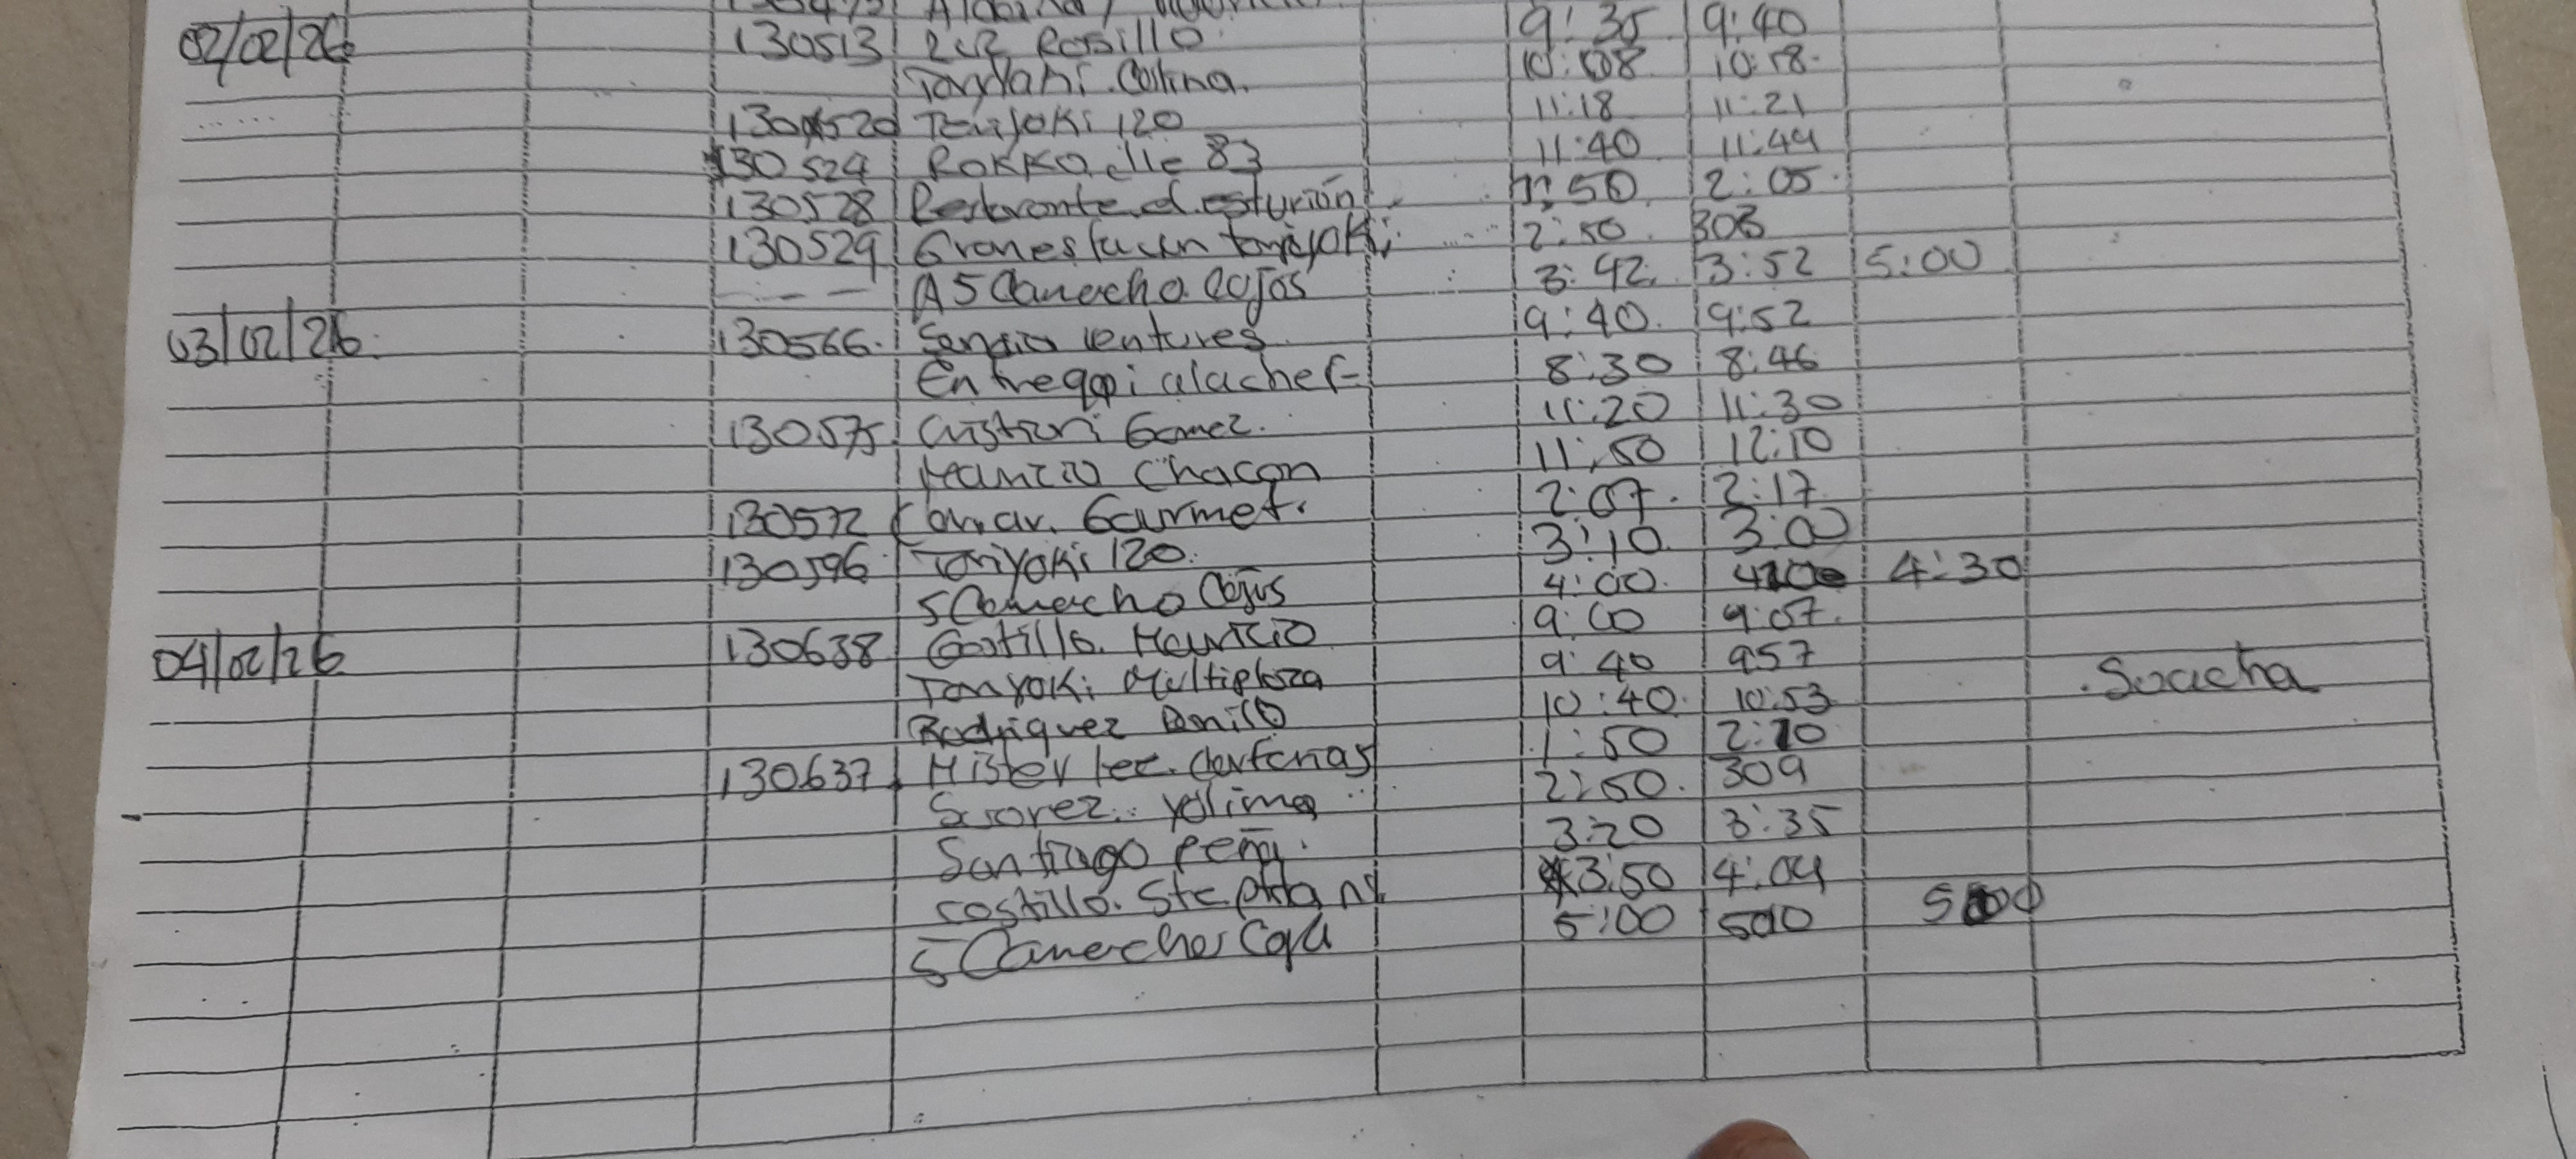 02/02/26 130513 R&R Rosillo. 9:35 9:40
Toriyaki Colina. 10:08 10:18
130520 Teriyoki 120 11:18 11:21
130524 ROKKO clle 83 11:40 11:49
130528 Restorante el esturión 1:50 2:05
130529 Granestacion toriyoki 2:50 303
A 5 Camacho Cojos 3:42 3:52 5:00
03/02/26 130566 Sengio Ventures 9:40 9:52
Entregqi alachef 8:30 8:46
130575 Cristian Gomez. 11:20 11:30
Mauricio Chacon 11:50 12:10
130572 Gourmet. 2:07 2:17
130596 Toriyoki 120. 3:10 3:00
5 Camacho Cojus 4:00 4:30
04/02/26 130638 Castillo Mauricio 9:00 9:07
Toriyoki Multiplaza 9:40 957
Rodriguez Danilo 10:40 10:53 Soacha
130637 Mister lee. 1:50 2:10
Suorez. Yolima 2:50 309
Santiago Peña. 3:20 3:35
costillo. Stephany 3:50 4:04
5 Camacho Caja 5:00 5010